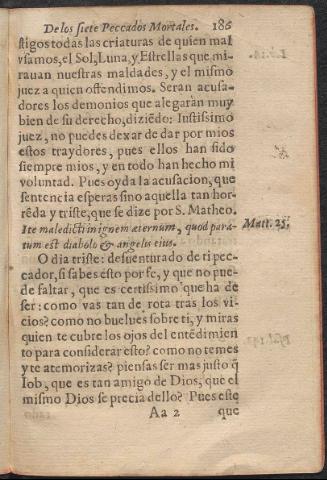 De los siete Peccados Mortales. 186
stigos todas las criaturas de quien mal
vsamos, el Sol, Luna, y Estrellas que mi-
rauan nuestras maldades, y el mismo
juez a quien offendimos. Seran acusa-
dores los demonios que alegaràn muy
bien de su derecho, diziẽdo: Iustissimo
juez, no puedes dexar de dar por mios
estos traydores, pues ellos han sido
siempre mios, y en todo han hecho mi
voluntad. Pues oyda la acusacion, que
sentencia esperas sino aquella tan hor-
rẽda y triste, que se dize por S. Matheo.
Ite maledicti in ignem æternum, quod para-
tum est diabolo & angelis eius.
Matt. 25.
O dia triste: desuenturado de ti pec-
cador, si sabes esto por fe, y que no pue-
de faltar, que es certissimo que ha de
ser: como vas tan de rota tras los vi-
cios? como no buelues sobre ti, y miras
quien te cubre los ojos del entẽdimien
to para considerar esto? como no temes
y te atemorizas? piensas ser mas justo q̃
Iob, que es tan amigo de Dios, que el
mismo Dios se precia dello? Pues este
Aa 2 que